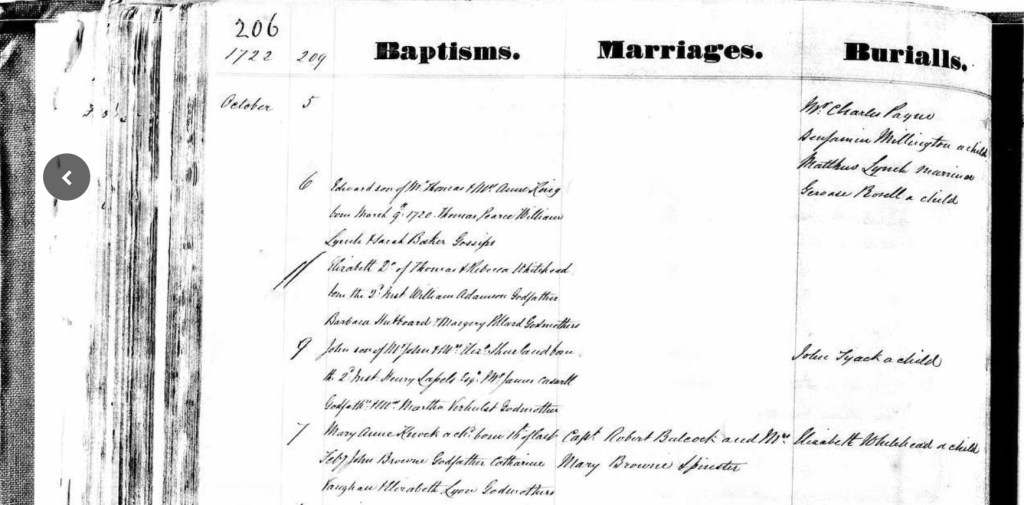 206
1722 209
Baptisms. Marriages. Burialls.
October 5
Mr. Charles Payne
Benjamin Millington a child
Matthew Lynch marriner
Gervase Rosell a child
6 Edward son of Mr. Thomas & Mrs. Anne King
born March 9th. 1720. Thomas Pearce William
Lynch & Sarah Baker Gossips
11 Elizabeth Dr. of Thomas & Rebecca Whitehead
born the 2d. Inst. William Adamson Godfather
Barbara Hubboard & Margery Pillard Godmothers
9 John son of Mr. John & Mrs. born John Tyack a child
the 2d. Inst. Henry Lapels Esqr. Mr. James
Godfathrs. & Mrs. Martha Verhulst Godmother
7 Mary Anne a born 16th. of last Capt. Robert Bulcock and Mrs. Elizabeth Whitehead a child
Feby. John Browne Godfather Catharine Mary Browne Spinster
Vaughan & Elizabeth Lyon Godmothers